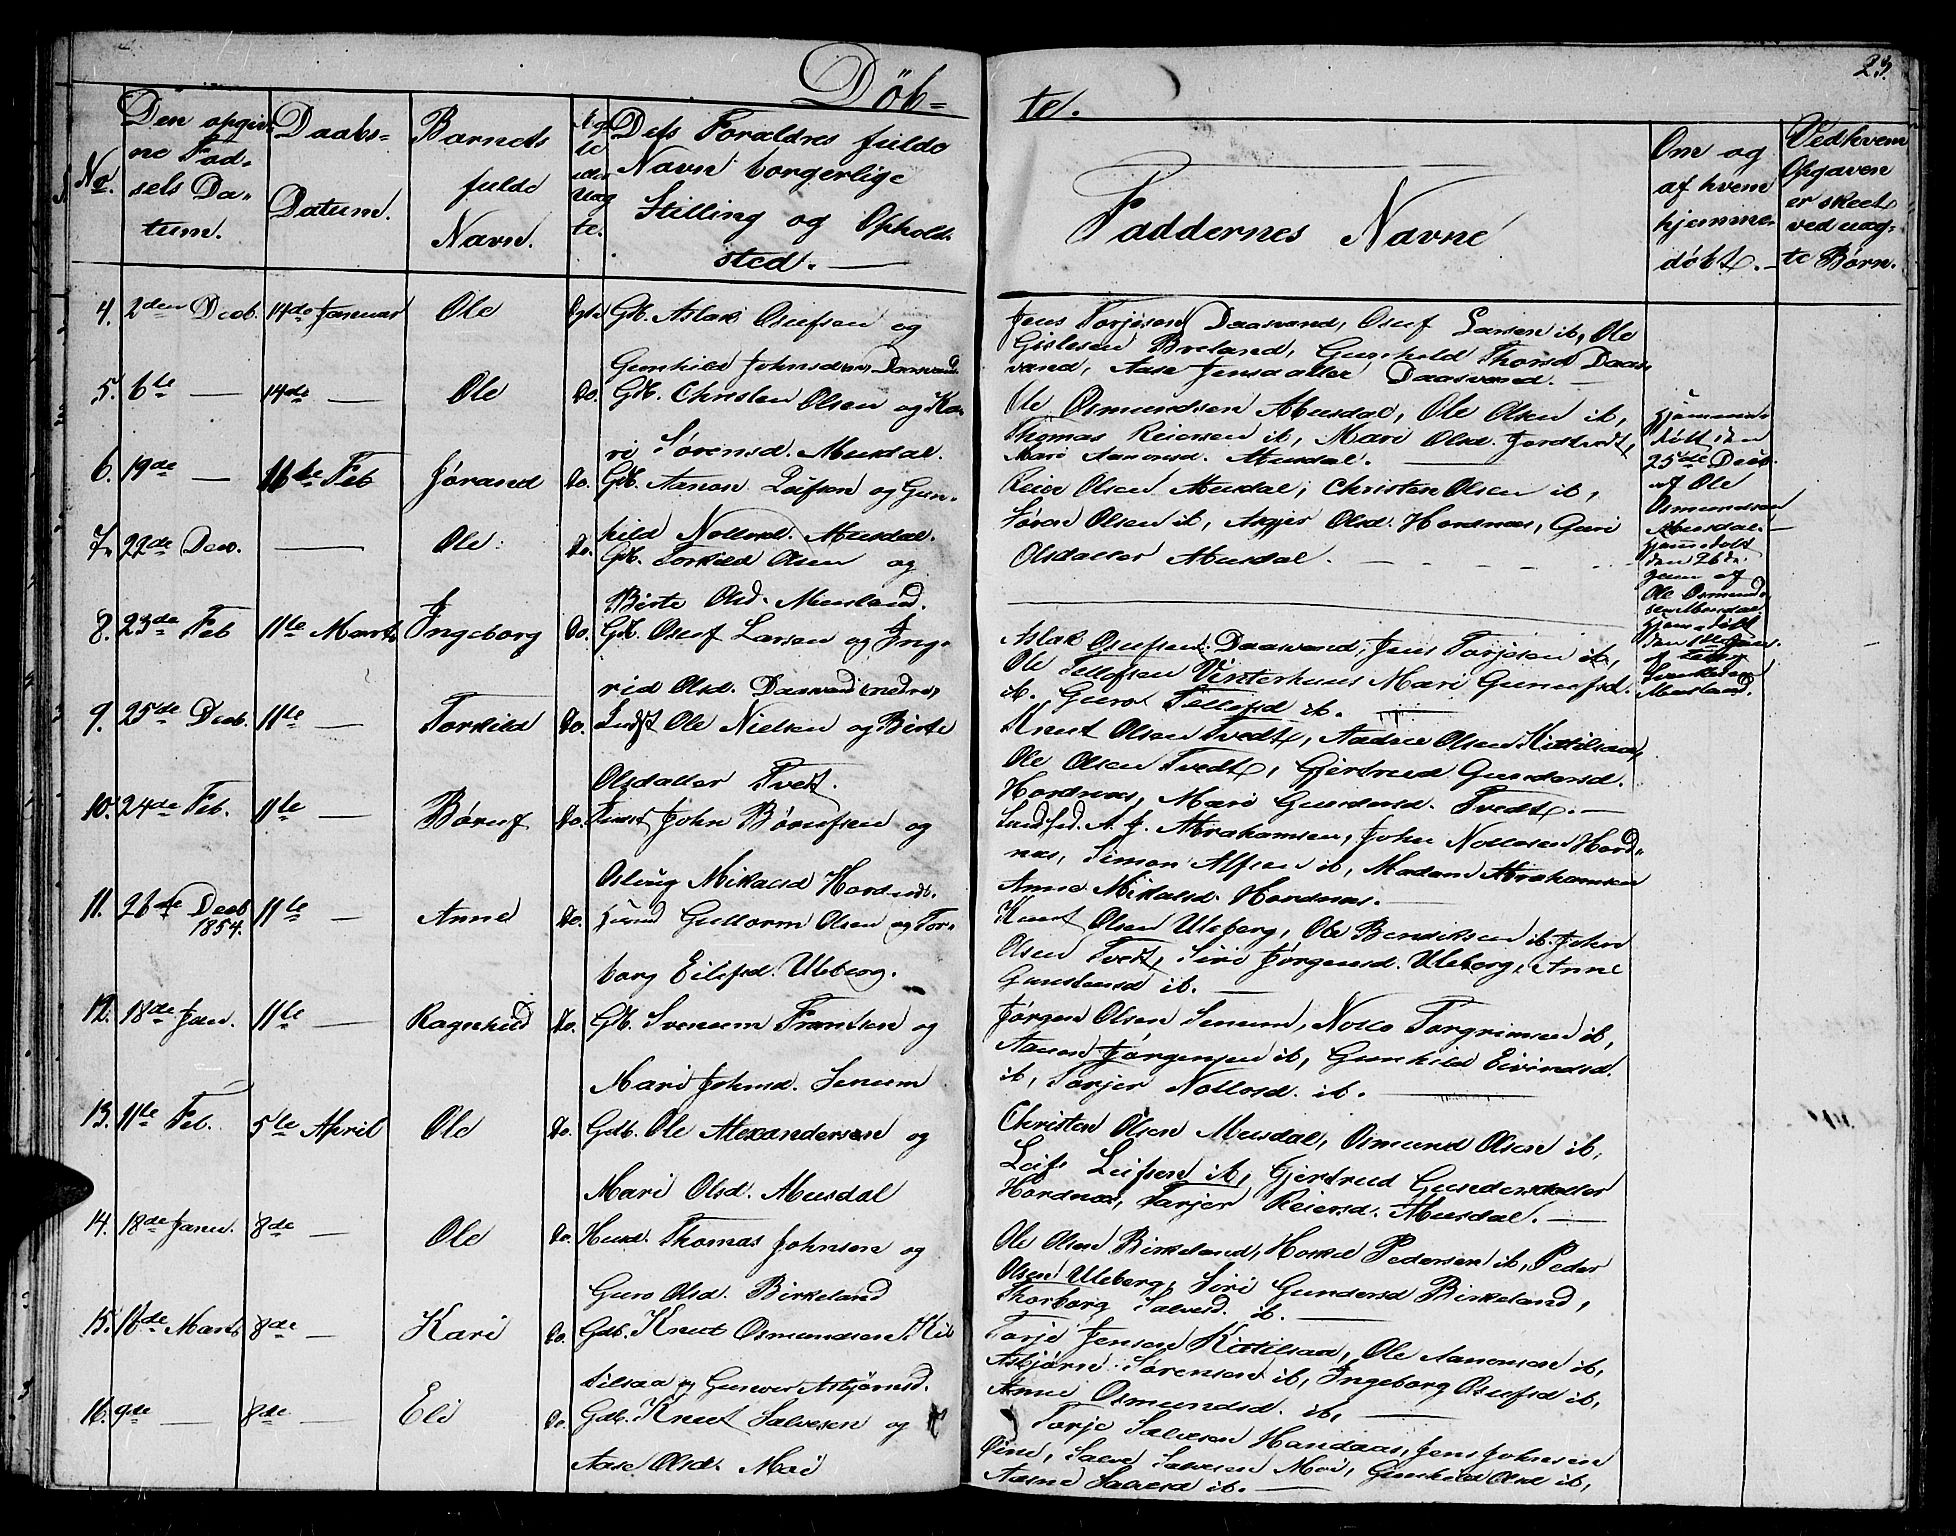 Döb=
te.
23.
No.
Den opgiv-
ne Fød-
sels Da-
tum.
Daabs-
Datum.
Barnets
fulde
Navn.
Ægte
eller
uægte.
Dets Forældres fulde
Navn borgerlige
Stilling og Opholds
sted.
Faddernes Navne
Om og
af hvem
hjemme-
döbt.
Vedhvem
Opgaven
er skeet
ved uæg-
te Børn.
4. 2den Decb. 14de Januar Ole Ægte Gb. Aslak Osufsen og
Gunhild Johnsd. Daasvand
Jens Torjesen Daasvand, Osuf Larsen ib, Ole
Gislesen Breland, Gunhild Thorsd Daas-
vand, Aase Jensdatter Daasvand.
5. 6te — 14de — Ole do. Gb. Christen Olsen og Ka-
ri Sørensd. Musdal.
Ole Osmundsen Musdal, Ole Olsen ib,
Thomas Reiersen ib, Mari Olsd.
Mari Aanonsd. Musdal.
hjemme-
döbt den
25de Decb.
af Ole
Osmundsen
Musdal.
6. 19de — 11te Feb Jørand do. Gb. Aanon Leifsen og Gun-
hild Nottosd. Musdal.
Reier Olsen Musdal, Christen Olsen ib,
Søren Olsen ib, Asgjer Olsd. Hordnæs, Guri
Olsdatter Musdal.
hjemdöbt
den 26de
af
Ole Osmund-
sen Musdal
7. 22de Dec. — Ole do. Gb. Torkild Olsen og
Birte Olsd. Musland.
hjemdöbt
den
af
Musland.
8. 23de Feb 11te Marts Ingeborg do. Gb. Osuf Larsen og Ing-
rid Olsd. Daasvand nedre,
Aslak Osufsen Daasvand, Jens Torjesen ib,
Ole Tellefsen Vinterhuus Mari Gunufsd.
ib. Guro Tellefsd ib.
9. 25de Decb. 11te — Torkild do. Ole Nielsen og Birte
Olsdatter Tvedt.
Knut Olsen Tvedt, Aadne Olsen Kittilsaa,
Ole Olsen Tvedt, Gjertrud Gundersd.
Hordnæs, Mari Gundersd. Tvedt.
10. 24de Feb. 11te — Børuf do. John Børufsen og
Oslaug Mikalsd Hordnæs.
A. J. Abrahamsen, John Nottosen Hord-
næs, Simon Alfsen ib, Madam Abrahamsen
Anne Mikalsd. Hordnæs.
11. 26de Decb
1854. 11te — Anne do. Guttorm Olsen og Tor-
borg Eilifsd. Uleberg.
Knut Olsen Uleberg, Ole Bendiksen ib. John
Olsen Tvedt, Siri Jørgensd. Uleberg, Anne
ib.
12. 18de Jan. 11te — Ragnhild do. Gb. Svenum Frantsen og
Mari Johnsd. Senum
Jørgen Olsen Senum, Notto Torgrimsen ib,
Aanon Jørgensen ib, Gunhild Eivindsd.
ib, Torjer Nottosd. ib.
13. 11te Feb. 5te April Ole do. Gdb. Ole Alexandersen og
Mari Olsd. Musdal
Christen Olsen Musdal, Osmund Olsen ib,
Leif Leifsen ib, Gjertrud Gundersdatter
Hordnæs, Tarjer Reiersd. Musdal.
14. 18de Janu. 8de — Ole do. Husd. Thomas Johnsen og
Guro Olsd. Birkeland
Ole Olsen Birkeland, Pedersen ib, Peder
Olsen Uleberg, Siri Gundersd Birkeland,
Thorborg Salvesd. ib.
15. 16de Marts 8de — Kari do. Gdb. Knut Osmundsen Kit
tilsaa og Gunvor Asbjørnsd.
Torje Jensen Kittilsaa, Ole Aanonsen ib,
Asbjørn Sørensen ib, Ingeborg Osufsd ib,
Anne Osmundsd. ib,
16. 9de — 8de — Eli do. Gdb. Knut Salvesen og
Aase Olsd. Moi
Torje Salvesen Handaas, Jens Johnsen
Salve Salvesen Moi, Gunhild Olsd ib,
Aasne Salvesd ib.